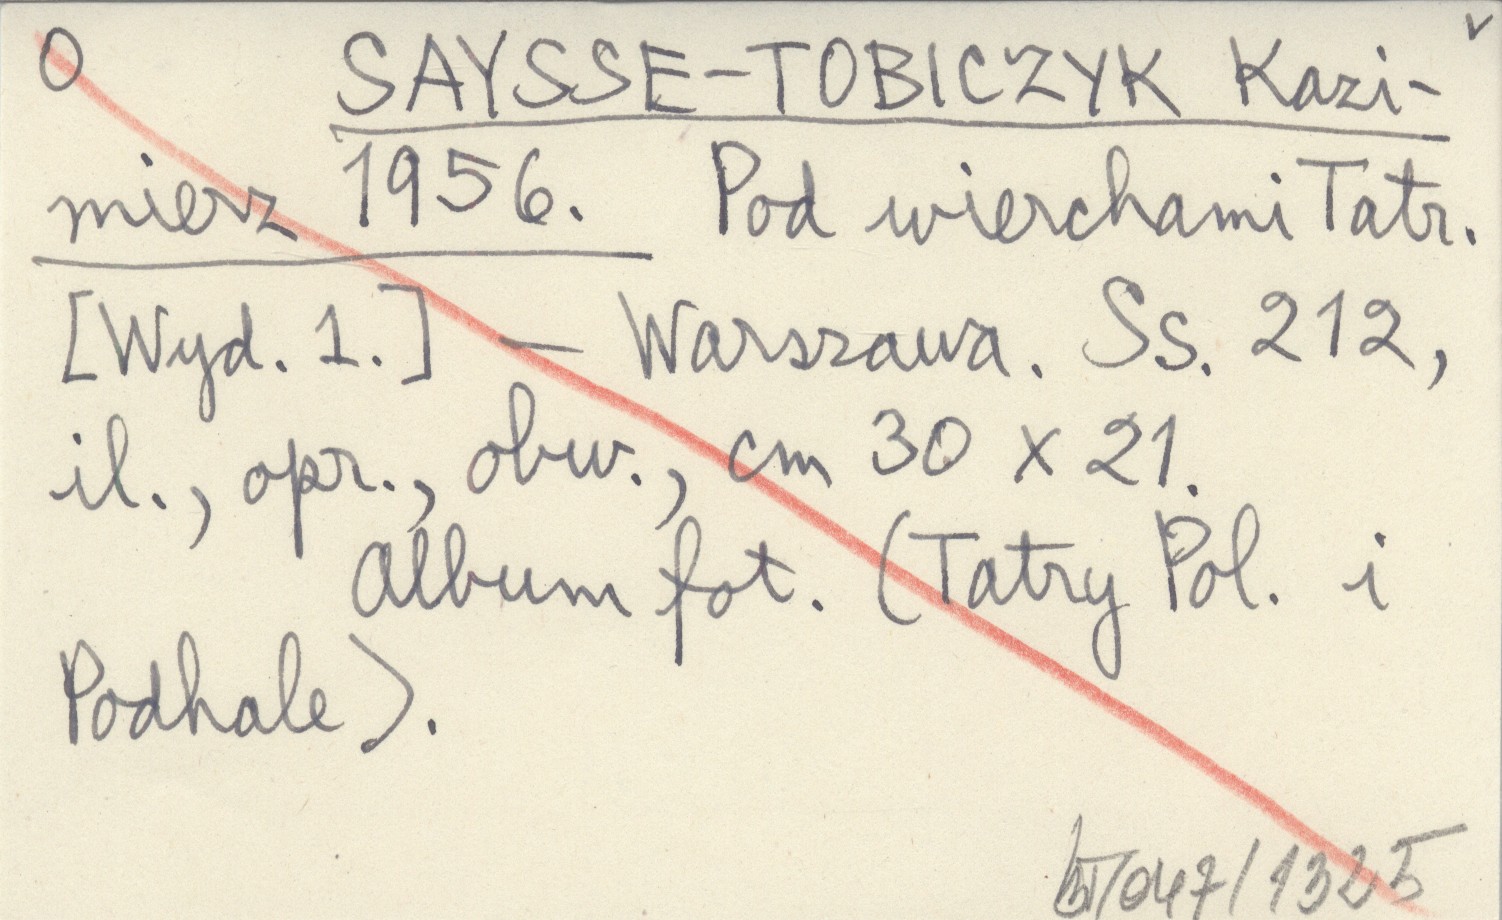 O SAYSSE-TOBICZYK Kazi- v
mierz 1956. Pod wierchami Tatr.
[Wyd. 1.] — Warszawa. Ss. 212,
il., opr., obw., cm 30 x 21.
Album fot. (Tatry Pol. i
Podhale).
/047/1325